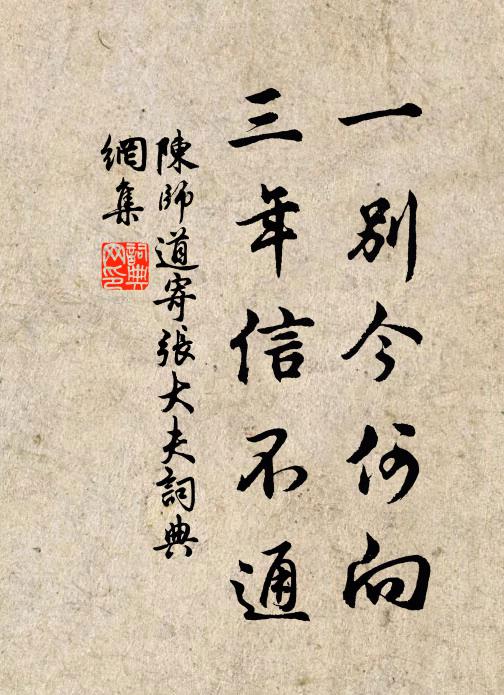 一別今何向
三年信不通
陳師道寄張大夫詞典
網集
詞典
网印